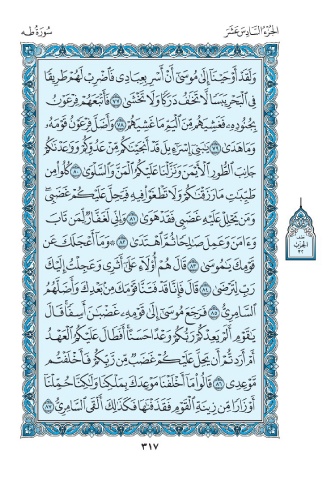 الجزء السادس عشر
سورة طه
وَلَقَدْ أَوْحَيْنَا إِلَىٰ مُوسَىٰ أَنْ أَسْرِ بِعِبَادِي فَاضْرِبْ لَهُمْ طَرِيقًا
فِي الْبَحْرِ يَبَسًا لَّا تَخَافُ دَرَكًا وَلَا تَخْشَىٰ ٧٧ فَأَتْبَعَهُمْ فِرْعَوْنُ
بِجُنُودِهِ فَغَشِيَهُم مِّنَ الْيَمِّ مَا غَشِيَهُمْ ٧٨ وَأَضَلَّ فِرْعَوْنُ قَوْمَهُ
وَمَا هَدَىٰ ٧٩ يَٰبَنِي إِسْرَٰٓءِيلَ قَدْ أَنجَيْنَٰكُم مِّنْ عَدُوِّكُمْ وَوَٰعَدْنَٰكُمْ
جَانِبَ الطُّورِ الْأَيْمَنَ وَنَزَّلْنَا عَلَيْكُمُ الْمَنَّ وَالسَّلْوَىٰ ٨٠ كُلُوا مِن
طَيِّبَٰتِ مَا رَزَقْنَٰكُمْ وَلَا تَطْغَوْا فِيهِ فَيَحِلَّ عَلَيْكُمْ غَضَبِي
وَمَن يَحْلِلْ عَلَيْهِ غَضَبِي فَقَدْ هَوَىٰ ٨١ وَإِنِّي لَغَفَّارٌ لِّمَن تَابَ
وَءَامَنَ وَعَمِلَ صَٰلِحًا ثُمَّ اهْتَدَىٰ ٨٢ ۞ وَمَا أَعْجَلَكَ عَن
قَوْمِكَ يَٰمُوسَىٰ ٨٣ قَالَ هُمْ أُولَاءِ عَلَىٰ أَثَرِي وَعَجِلْتُ إِلَيْكَ
رَبِّ لِتَرْضَىٰ ٨٤ قَالَ فَإِنَّا قَدْ فَتَنَّا قَوْمَكَ مِنۢ بَعْدِكَ وَأَضَلَّهُمُ
السَّامِرِيُّ ٨٥ فَرَجَعَ مُوسَىٰ إِلَىٰ قَوْمِهِ غَضْبَٰنَ أَسِفًا قَالَ
يَٰقَوْمِ أَلَمْ يَعِدْكُمْ رَبُّكُمْ وَعْدًا حَسَنًا أَفَطَالَ عَلَيْكُمُ الْعَهْدُ
أَمْ أَرَدتُّمْ أَن يَحِلَّ عَلَيْكُمْ غَضَبٌ مِّن رَّبِّكُمْ فَأَخْلَفْتُم
مَّوْعِدِي ٨٦ قَالُوا مَا أَخْلَفْنَا مَوْعِدَكَ بِمَلْكِنَا وَلَٰكِنَّا حُمِّلْنَا
أَوْزَارًا مِّن زِينَةِ الْقَوْمِ فَقَذَفْنَٰهَا فَكَذَٰلِكَ أَلْقَى السَّامِرِيُّ ٨٧
٣١٧